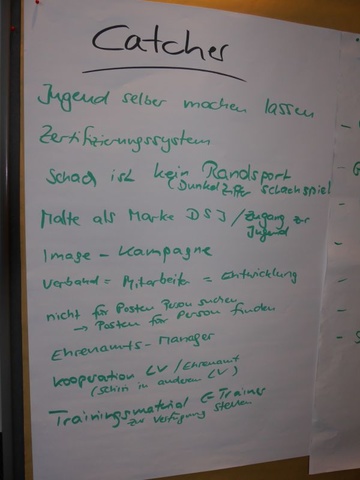 Catcher
Jugend selber machen lassen
Zertifizierungssystem
Schach ist kein Randsport
(Dunkelziffer Schachspiel
Malte als Marke DSJ / Zugang zur
Jugend
Image - Kampagne
Verband = Mitarbeiter = Entwicklung
nicht für Posten Person suchen
→ Posten für Person finden
Ehrenamts-Manager
Kooperation LV / Ehrenamt
(schon in anderen LV)
Trainingsmaterial C-Trainer
zur Verfügung stellen